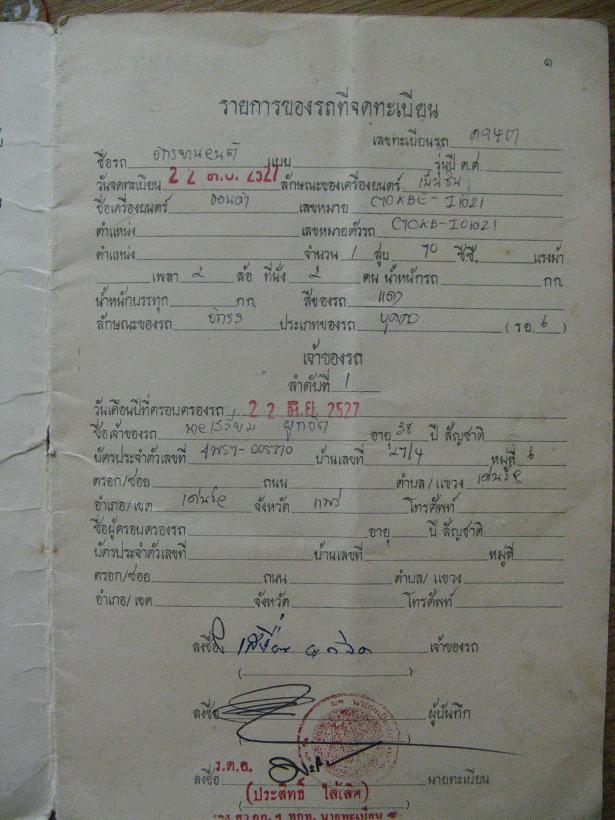 ๑
รายการของรถที่จดทะเบียน
เลขทะเบียนรถ
ชื่อรถ จักรยานยนต์ แบบ รุ่นปี ค.ศ.
วันจดทะเบียน 2 2 2527 ลักษณะของเครื่องยนตร์ เบ็นซิน
ชื่อเครื่องยนตร์ ฮอนด้า เลขหมาย C70KBE-I01021
ตำแหน่ง เลขหมายตัวรถ C70KB-I01021
ตำแหน่ง จำนวน 1 สูบ 70 ซีซี. แรงม้า
เพลา ๒ ล้อ ที่นั่ง ๒ คน น้ำหนักรถ กก.
น้ำหนักบรรทุก กก. สีของรถ แดง
ลักษณะของรถ จักรย ประเภทของรถ บุคคล (รย. ๖)
เจ้าของรถ
ลำดับที่ 1
วันเดือนปีที่ครอบครองรถ 2 2 มิ.ย. 2527
ชื่อเจ้าของรถ อายุ 38 ปี สัญชาติ
บัตรประจำตัวเลขที่ บ้านเลขที่ 27/4 หมู่ที่ ๖
ตรอก/ซอย ถนน ตำบล/แขวง เด่นชัย
อำเภอ/เขต เด่นชัย จังหวัด แพร่ โทรศัพท์
ชื่อผู้ครอบครองรถ อายุ ปี สัญชาติ
บัตรประจำตัวเลขที่ บ้านเลขที่ หมู่ที่
ตรอก/ซอย ถนน ตำบล/แขวง
อำเภอ/เขต จังหวัด โทรศัพท์
ลงชื่อ เจ้าของรถ
( )
ลงชื่อ ผู้บันทึก
( )
ร.ต.อ.
ลงชื่อ นายทะเบียน
(ประสิทธิ์ ไส้เลิศ)